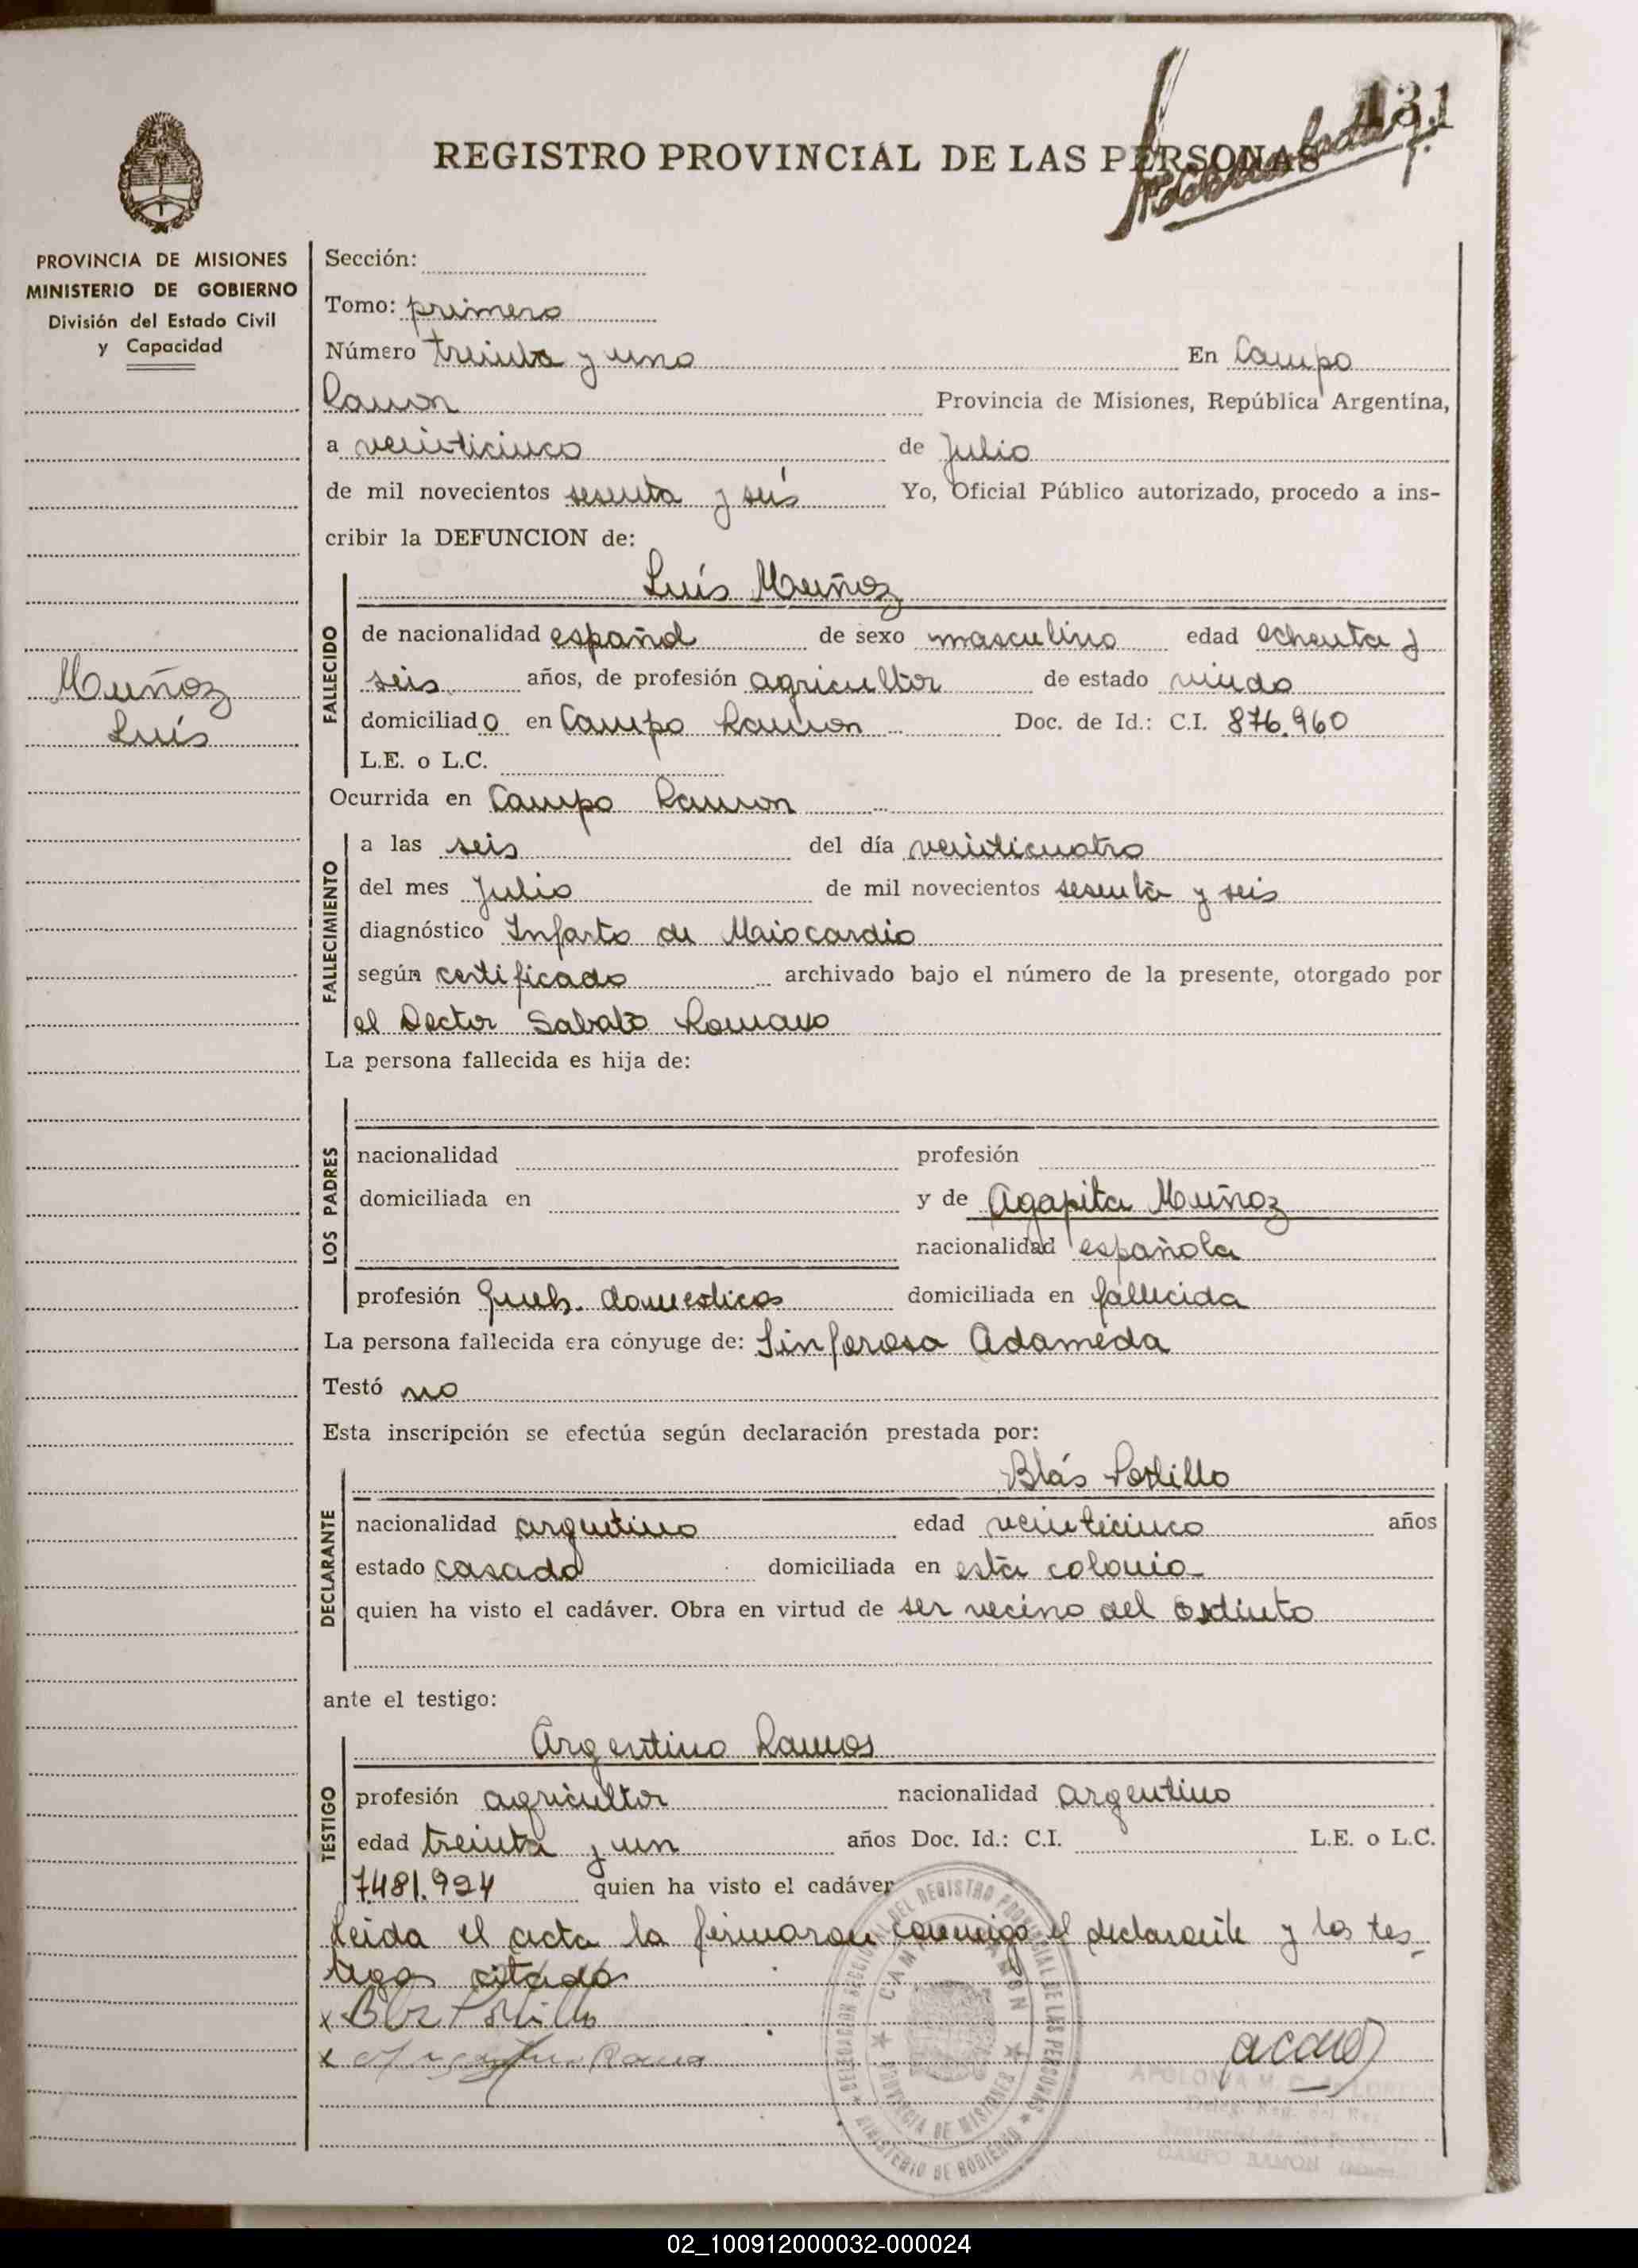 131
REGISTRO PROVINCIAL DE LAS PERSONAS
PROVINCIA DE MISIONES
MINISTERIO DE GOBIERNO
División del Estado Civil
y Capacidad
Muñoz
Luís
Sección:
Tomo: primero
Número treinta y uno En Campo
Ramon Provincia de Misiones, República Argentina,
a veinticinco de Julio
de mil novecientos sesenta y seis Yo, Oficial Público autorizado, procedo a ins-
cribir la DEFUNCION de:
Luís Muñoz
FALLECIDO
de nacionalidad español de sexo masculino edad ochenta y
seis años, de profesión agricultor de estado viudo
domiciliado en Campo Ramon Doc. de Id.: C.I. 876.960
L.E. o L.C.
Ocurrida en Campo Ramon
FALLECIMIENTO
a las seis del día veinticuatro
del mes Julio de mil novecientos sesenta y seis
diagnóstico Infarto de Maiocardio
según certificado archivado bajo el número de la presente, otorgado por
el Doctor Sabato Romano
La persona fallecida es hija de:
LOS PADRES
nacionalidad profesión
domiciliada en y de Agapita Muñoz
nacionalidad española
profesión domesticos domiciliada en fallecida
La persona fallecida era cónyuge de: Sinforosa Adameda
Testó no
Esta inscripción se efectúa según declaración prestada por:
Blás Portillo
DECLARANTE
nacionalidad argentino edad veinticinco años
estado casado domiciliada en esta colonia
quien ha visto el cadáver. Obra en virtud de ser vecino del extinto
ante el testigo:
Argentino Ramos
TESTIGO
profesión agricultor nacionalidad argentino
edad treinta y un años Doc. Id.: C.I. L.E. o L.C.
7481.924 quien ha visto el cadáver
Leida el acta la firmaron conmigo el declarante y los tes-
tigos citados
x Blas Portillo
x Argentino Ramos
DELEGACION SECCIONAL DEL REGISTRO PROVINCIAL DE LAS PERSONAS
CAMPO RAMON
PROVINCIA DE MISIONES
MINISTERIO DE GOBIERNO
APOLONIA M. C. de
CAMPO RAMON
02_100912000032-000024